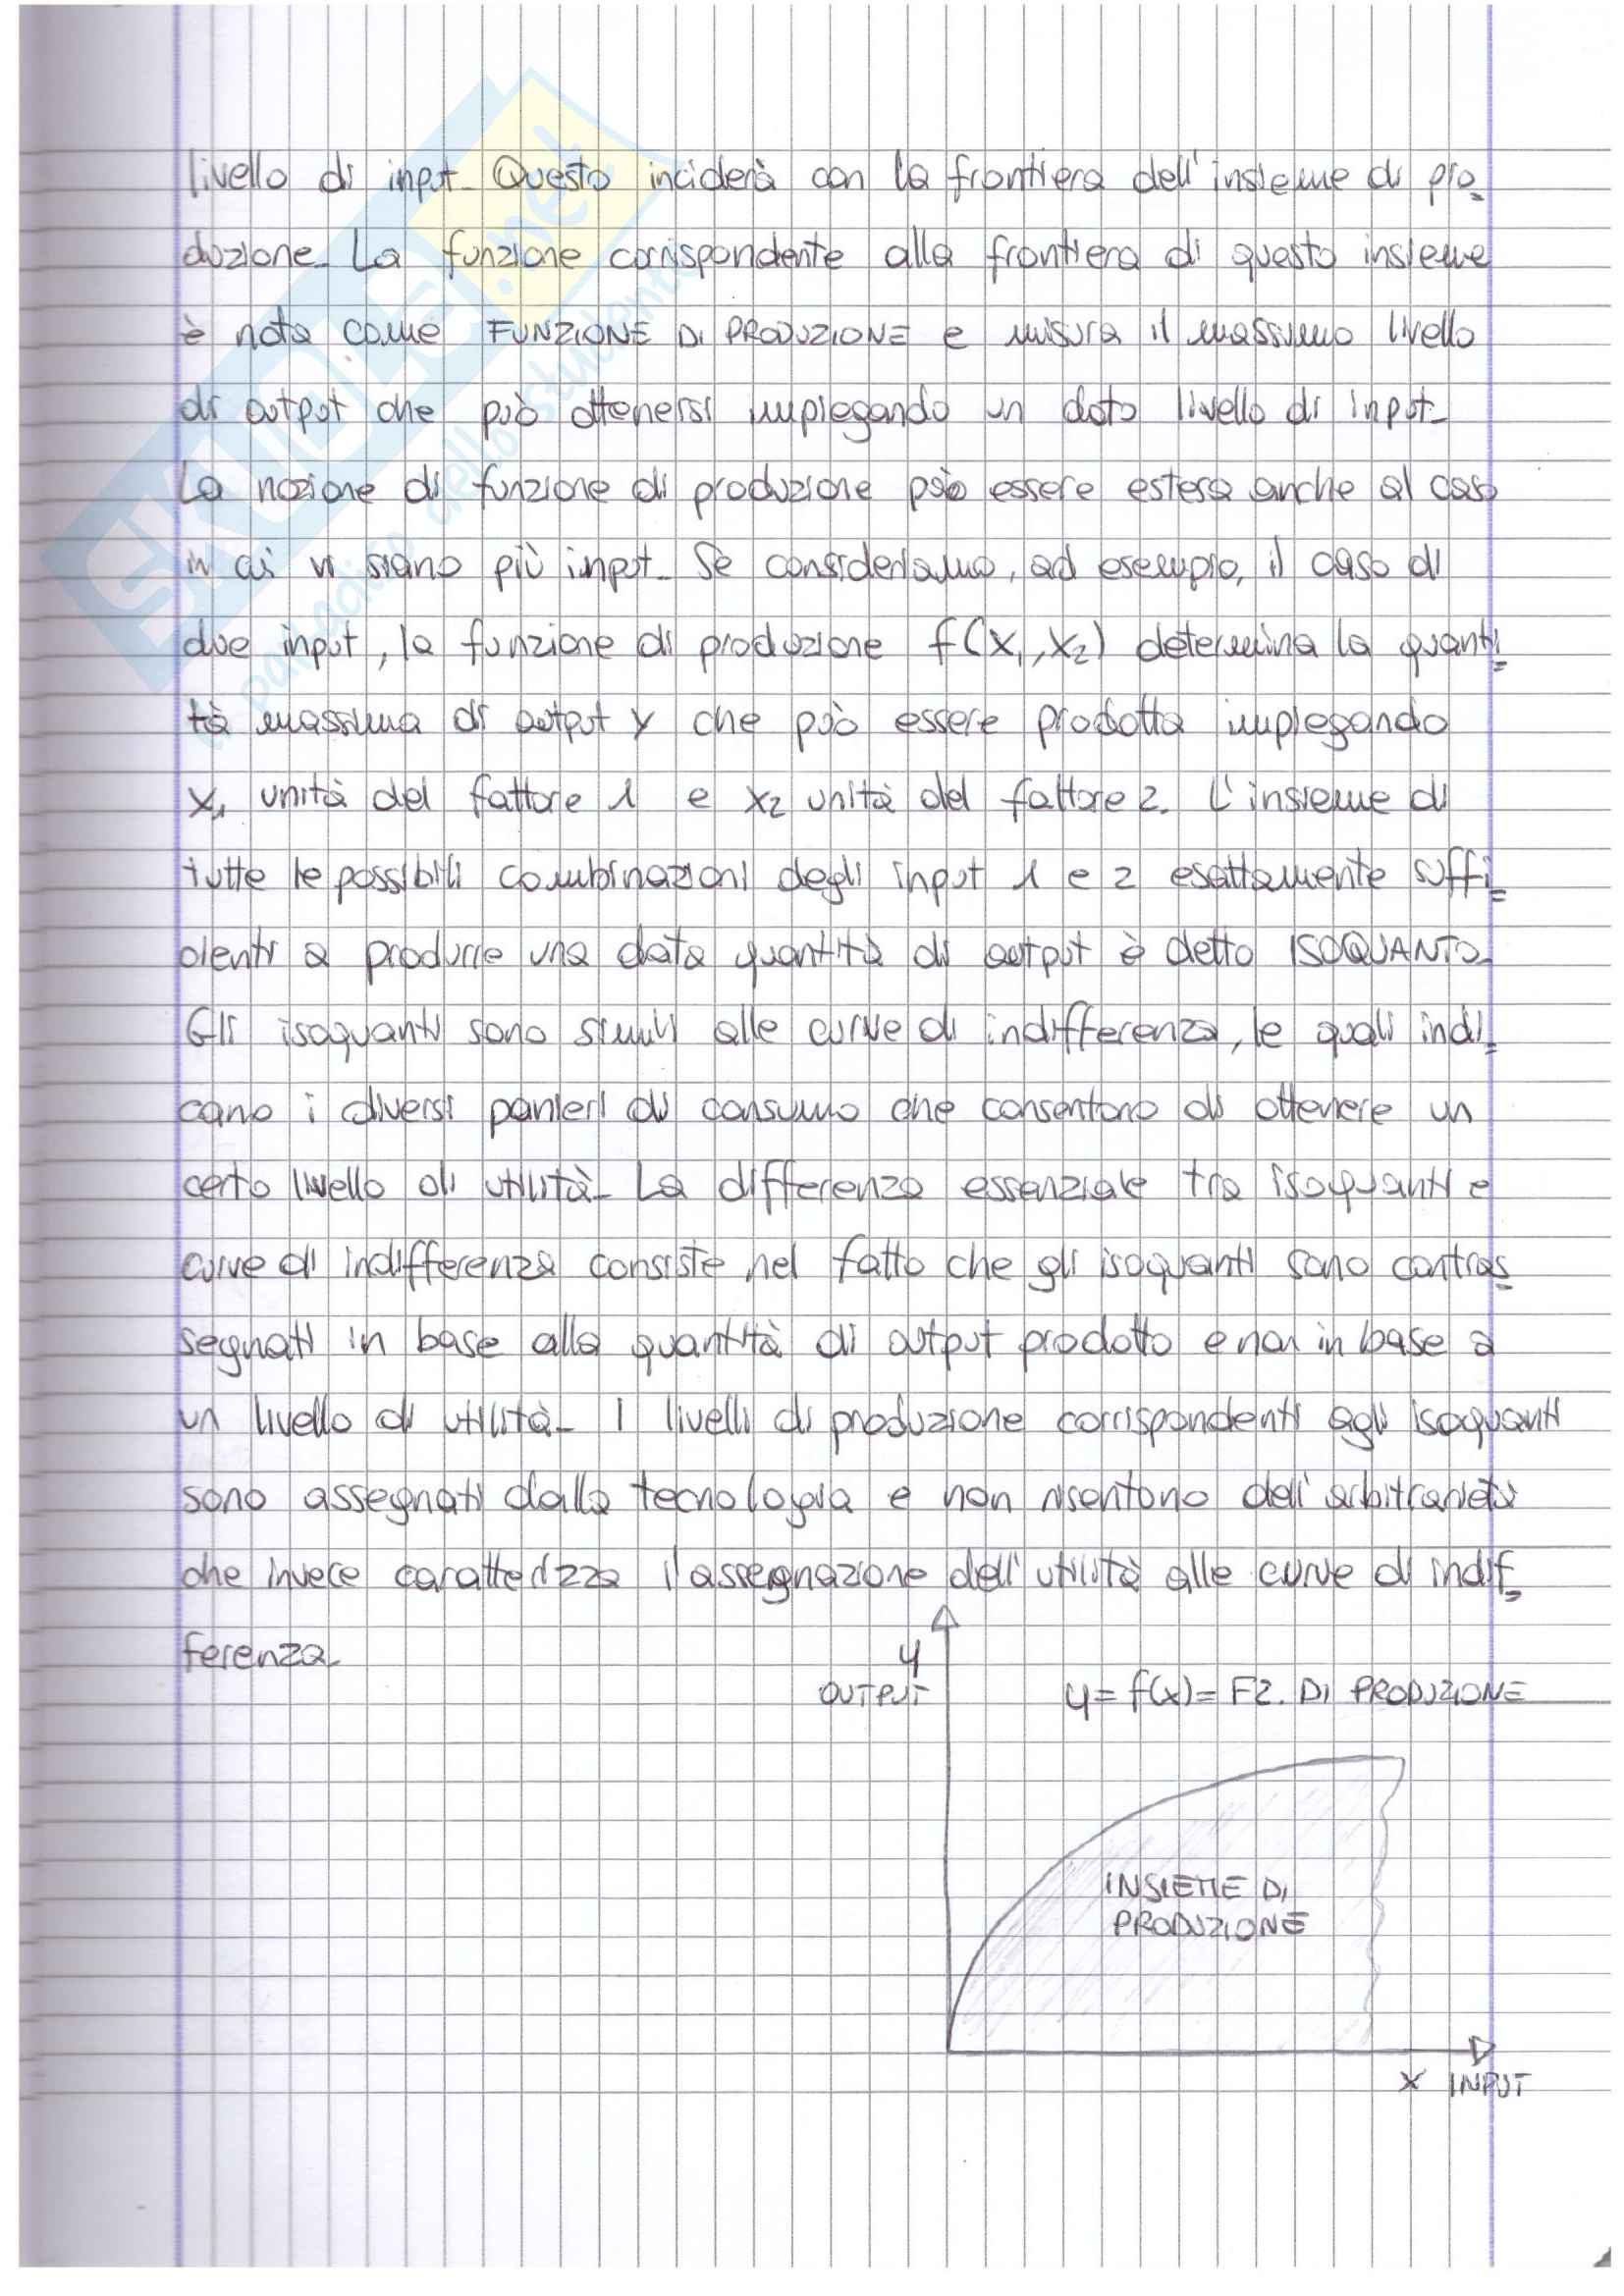 livello di input. Questo inciderà con la frontiera dell'insieme di pro_
duzione. La funzione corrispondente alla frontiera di questo insieme
è nota come FUNZIONE DI PRODUZIONE e misura il massimo livello
di output che può ottenersi impiegando un dato livello di input.
La nozione di funzione di produzione può essere estesa anche al caso
in cui vi siano più input. Se consideriamo, ad esempio, il caso di
due input, la funzione di produzione f(x₁,x₂) determina la quanti_
tà massima di output y che può essere prodotta impiegando
x₁ unità del fattore 1 e x₂ unità del fattore 2. L'insieme di
tutte le possibili combinazioni degli input 1 e 2 esattamente suffi_
cienti a produrre una data quantità di output è detto ISOQUANTO.
Gli isoquanti sono simili alle curve di indifferenza, le quali indi_
cano i diversi panieri di consumo che consentono di ottenere un
certo livello di utilità. La differenza essenziale tra isoquanti e
curve di indifferenza consiste nel fatto che gli isoquanti sono contras_
segnati in base alla quantità di output prodotto e non in base a
un livello di utilità. I livelli di produzione corrispondenti agli isoquanti
sono assegnati dalla tecnologia e non risentono dell'arbitrarietà
che invece caratterizza l'assegnazione dell'utilità alle curve di indif_
ferenza.
y
OUTPUT
y = f(x) = FZ. DI PRODUZIONE
INSIEME DI
PRODUZIONE
x INPUT
SKUOLA.net
paradiso dello studente